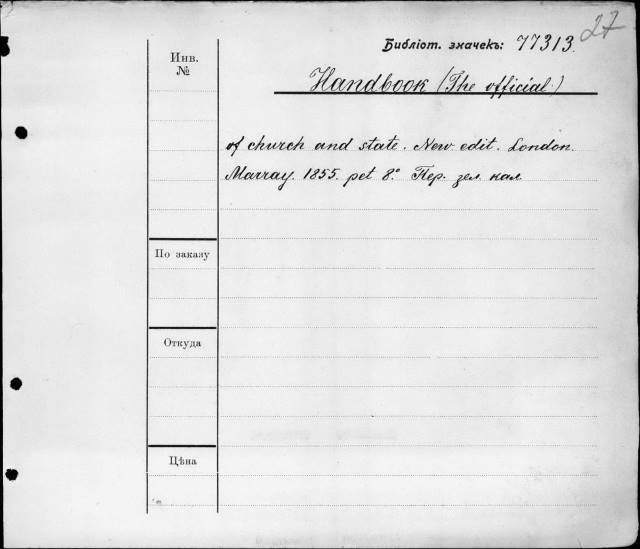 27
Библіот. значекъ: 77313.
Инв.
№
Handbook (The official.)
of church and state. New. edit. London.
Marray. 1855. pet 8.° Пер. зел. кал.
По заказу
Откуда
Цѣна